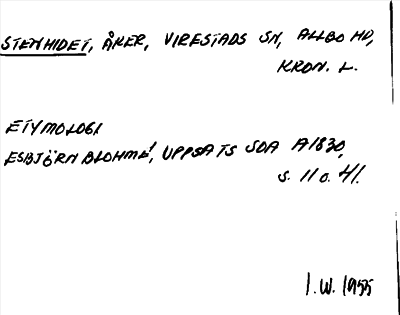 STENHIDET, ÅKER, VIRESTADS SN, ALLBO HD,
KRON. L.
ETYMOLOGI
ESBJÖRN BLOHMÉ, UPPSATS SOA A1830,
S. 11 o. 41.
I.W. 1955